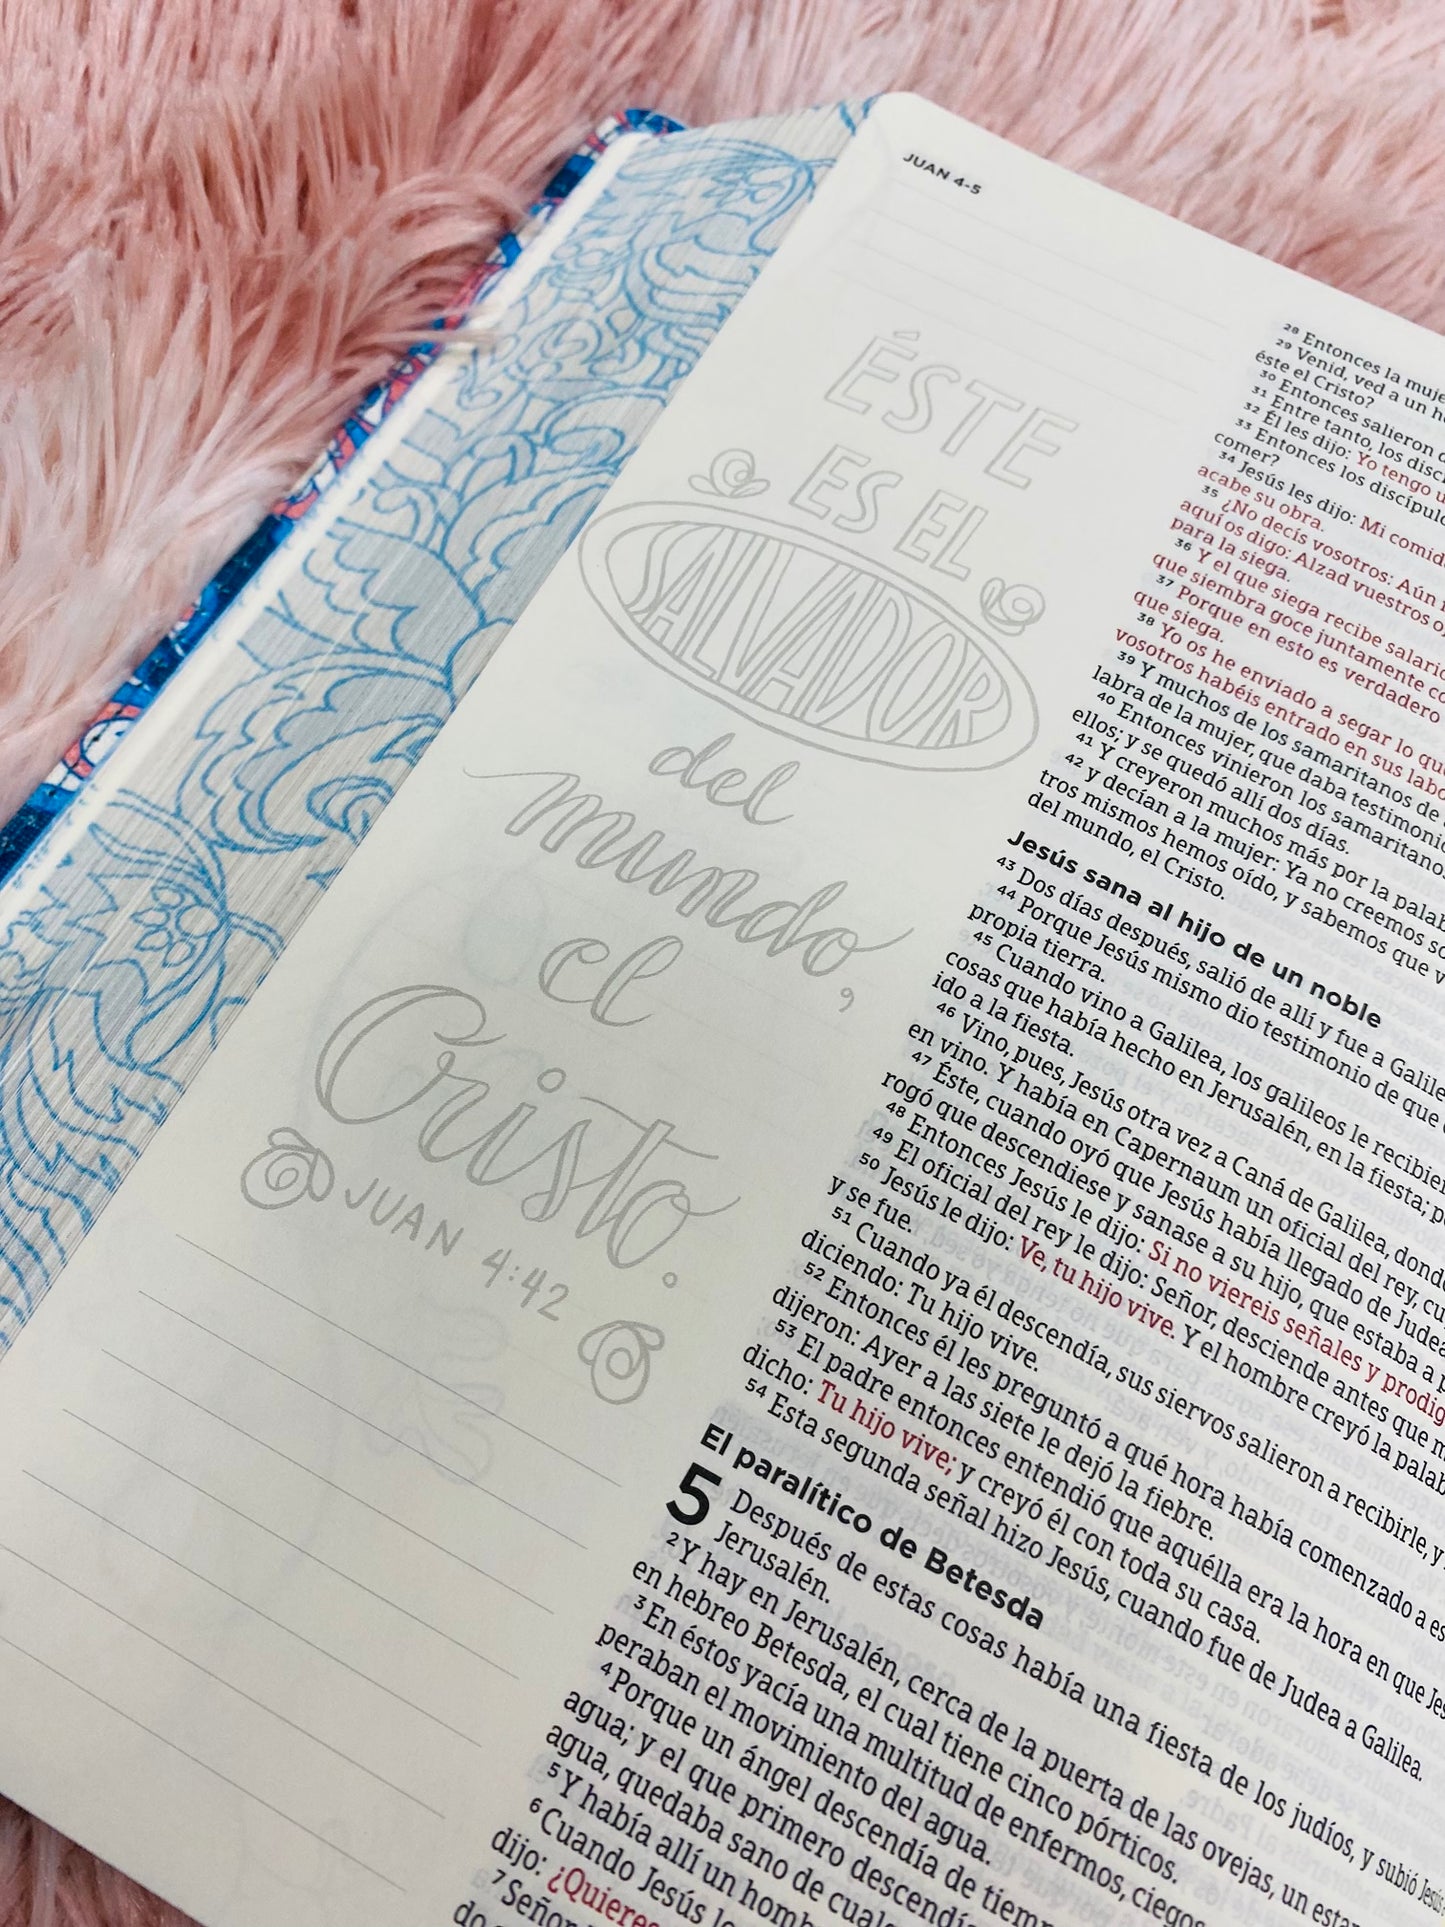 JUAN 4-5
ÉSTE
ES EL
SALVADOR
del
mundo,
el
Cristo.
JUAN 4:42
28 Entonces la
29 Venid, ved a un
éste el Cristo?
30 Entonces salieron
31 Entre tanto, los
32 Él les dijo: Yo tengo
33 Entonces los
comer?
34 Jesús les dijo: Mi
acabe su obra.
35 ¿No decís vosotros: Aún
aquí os digo: Alzad vuestros
para la siega.
36 Y el que siega recibe
que siembra goce juntamente
37 Porque en esto es verdadero
que siega.
38 Yo os he enviado a segar lo
vosotros habéis entrado en sus
39 Y muchos de los samaritanos de
labra de la mujer, que daba
40 Entonces vinieron los
ellos; y se quedó allí dos días.
41 Y creyeron muchos más por la
42 y decían a la mujer: Ya no creemos
tros mismos hemos oído, y sabemos que
del mundo, el Cristo.
Jesús sana al hijo de un noble
43 Dos días después, salió de allí y fue a
44 Porque Jesús mismo dio testimonio de que
propia tierra.
45 Cuando vino a Galilea, los galileos le
cosas que había hecho en Jerusalén, en la fiesta;
ido a la fiesta.
46 Vino, pues, Jesús otra vez a Caná de Galilea,
en vino. Y había en Capernaum un oficial del rey,
47 Éste, cuando oyó que Jesús había llegado de
rogó que descendiese y sanase a su hijo, que estaba a
48 Entonces Jesús le dijo: Si no viereis señales y
49 El oficial del rey le dijo: Señor, desciende antes que
50 Jesús le dijo: Ve, tu hijo vive. Y el hombre creyó la
y se fue.
51 Cuando ya él descendía, sus siervos salieron a recibirle, y
diciendo: Tu hijo vive.
52 Entonces él les preguntó a qué hora había comenzado a
dijeron: Ayer a las siete le dejó la fiebre.
53 El padre entonces entendió que aquélla era la hora en que
dicho: Tu hijo vive; y creyó él con toda su casa.
54 Esta segunda señal hizo Jesús, cuando fue de Judea a Galilea.
El paralítico de Betesda
5 Después de estas cosas había una fiesta de los judíos, y subió
Jerusalén.
2 Y hay en Jerusalén, cerca de la puerta de las ovejas, un
en hebreo Betesda, el cual tiene cinco pórticos.
3 En éstos yacía una multitud de enfermos, ciegos
peraban el movimiento del agua.
4 Porque un ángel descendía de
agua; y el que primero
agua, quedaba sano de
5 Y había allí un
6 Cuando Jesús
dijo:
7 Señor